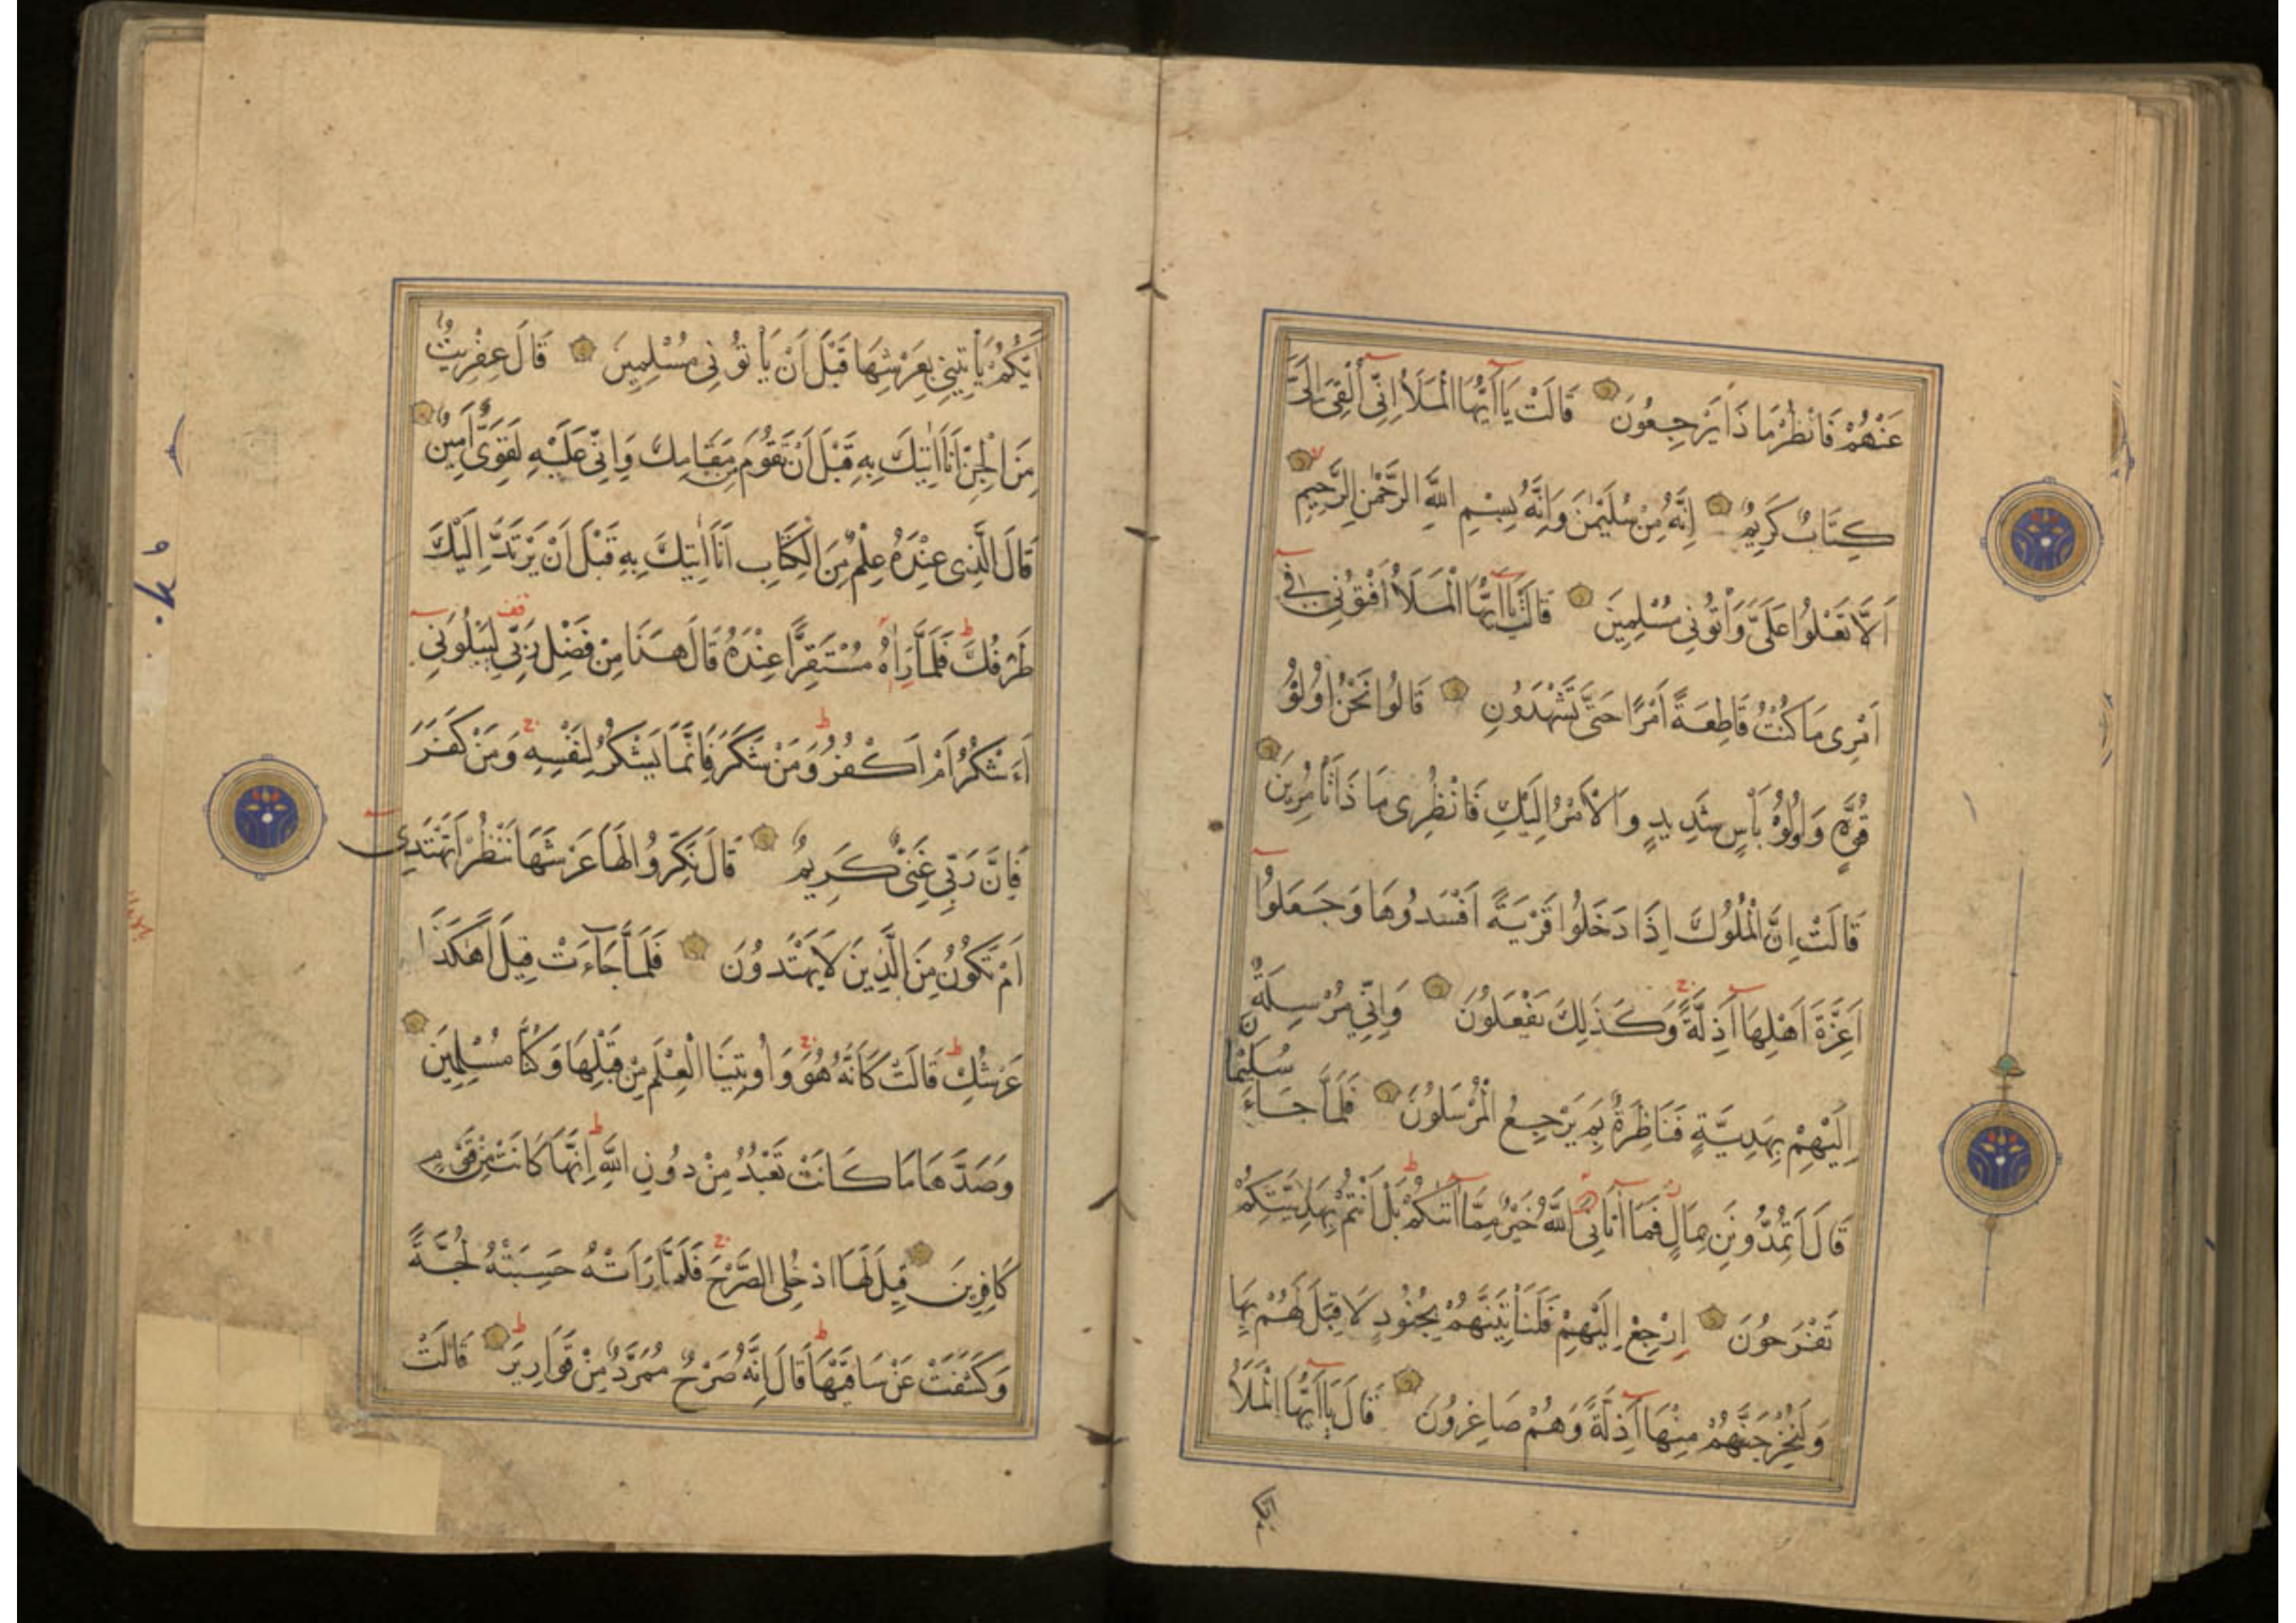 عَنْهُمْ فَانْظُرْ مَا ذَا يَرْجِعُونَ قَالَتْ يَا أَيُّهَا الْمَلَأُ إِنِّي أُلْقِيَ إِلَيَّ
كِتَابٌ كَرِيمٌ إِنَّهُ مِنْ سُلَيْمٰنَ وَإِنَّهُ بِسْمِ اللَّهِ الرَّحْمٰنِ الرَّحِيمِ
اَلَّا تَعْلُوا عَلَيَّ وَأْتُونِي مُسْلِمِينَ قَالَتْ يَا أَيُّهَا الْمَلَأُ أَفْتُونِي فِي
اَمْرِي مَا كُنْتُ قَاطِعَةً اَمْرًا حَتَّى تَشْهَدُونِ قَالُوا نَحْنُ اُولُوْا
قُوَّةٍ وَاُولُوْا بَأْسٍ شَدِيدٍ وَالْاَمْرُ اِلَيْكِ فَانْظُرِي مَا ذَا تَأْمُرِينَ
قَالَتْ اِنَّ الْمُلُوكَ اِذَا دَخَلُوا قَرْيَةً اَفْسَدُوهَا وَجَعَلُوا
اَعِزَّةَ اَهْلِهَا اَذِلَّةً وَكَذَلِكَ يَفْعَلُونَ وَاِنِّي مُرْسِلَةٌ
اِلَيْهِمْ بِهَدِيَّةٍ فَنَاظِرَةٌ بِمَ يَرْجِعُ الْمُرْسَلُونَ فَلَمَّا جَاءَ سُلَيْمٰنَ
قَالَ اَتُمِدُّونَنِ بِمَالٍ فَمَا اٰتَانِيَ اللَّهُ خَيْرٌ مِمَّا اٰتٰكُمْ بَلْ اَنْتُمْ بِهَدِيَّتِكُمْ
تَفْرَحُونَ اِرْجِعْ اِلَيْهِمْ فَلَنَأْتِيَنَّهُمْ بِجُنُودٍ لَا قِبَلَ لَهُمْ بِهَا
وَلَنُخْرِجَنَّهُمْ مِنْهَا اَذِلَّةً وَهُمْ صَاغِرُونَ قَالَ يَا اَيُّهَا الْمَلَأُ
ايكم
اَيُّكُمْ يَأْتِينِي بِعَرْشِهَا قَبْلَ اَنْ يَأْتُونِي مُسْلِمِينَ قَالَ عِفْرِيتٌ
مِنَ الْجِنِّ اَنَا اٰتِيكَ بِهِ قَبْلَ اَنْ تَقُومَ مِنْ مَقَامِكَ وَاِنِّي عَلَيْهِ لَقَوِيٌّ اَمِينٌ
قَالَ الَّذِي عِنْدَهُ عِلْمٌ مِنَ الْكِتَابِ اَنَا اٰتِيكَ بِهِ قَبْلَ اَنْ يَرْتَدَّ اِلَيْكَ
طَرْفُكَ فَلَمَّا رَاٰهُ مُسْتَقِرًّا عِنْدَهُ قَالَ هَذَا مِنْ فَضْلِ رَبِّي لِيَبْلُوَنِي
ءَاَشْكُرُ اَمْ اَكْفُرُ وَمَنْ شَكَرَ فَاِنَّمَا يَشْكُرُ لِنَفْسِهِ وَمَنْ كَفَرَ
فَاِنَّ رَبِّي غَنِيٌّ كَرِيمٌ قَالَ نَكِّرُوا لَهَا عَرْشَهَا نَنْظُرْ اَتَهْتَدِي
اَمْ تَكُونُ مِنَ الَّذِينَ لَا يَهْتَدُونَ فَلَمَّا جَاءَتْ قِيلَ اَهٰكَذَا
عَرْشُكِ قَالَتْ كَاَنَّهُ هُوَ وَاُوتِينَا الْعِلْمَ مِنْ قَبْلِهَا وَكُنَّا مُسْلِمِينَ
وَصَدَّهَا مَا كَانَتْ تَعْبُدُ مِنْ دُونِ اللَّهِ اِنَّهَا كَانَتْ مِنْ قَوْمٍ
كَافِرِينَ قِيلَ لَهَا ادْخُلِي الصَّرْحَ فَلَمَّا رَاَتْهُ حَسِبَتْهُ لُجَّةً
وَكَشَفَتْ عَنْ سَاقَيْهَا قَالَ اِنَّهُ صَرْحٌ مُمَرَّدٌ مِنْ قَوَارِيرَ قَالَتْ